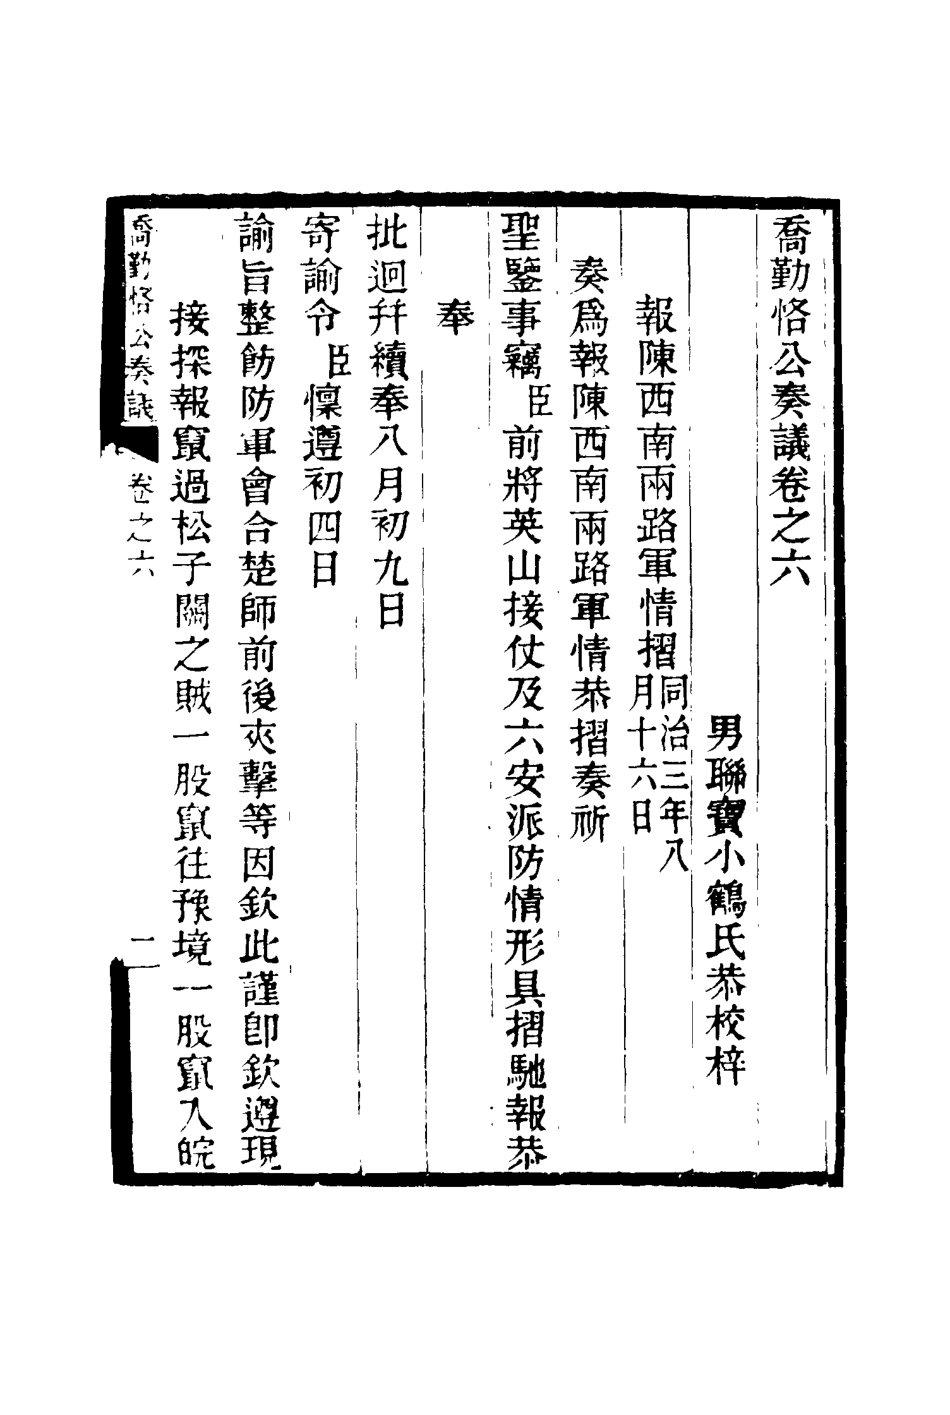 喬勤恪公奏議卷之六
男聯寶小鶴氏恭校梓
報陳西南兩路軍情摺同治三年八月十六日
奏爲報陳西南兩路軍情恭摺奏祈
聖鑒事竊臣前將英山接仗及六安派防情形具摺馳報恭
奉
批迴幷續奉八月初九日
寄諭令臣懍遵初四日
諭旨整飭防軍會合楚師前後夾擊等因欽此謹卽欽遵現
接探報竄過松子關之賊一股竄往豫境一股竄入皖
喬勤恪公奏議 卷之六 二